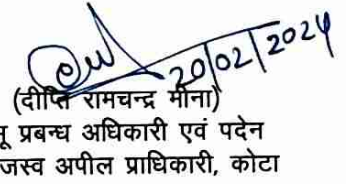 20/02/2024
(दीप्ति रामचन्द्र मीना)
प्रबन्ध अधिकारी एवं पदेन
अपील प्राधिकारी, कोटा